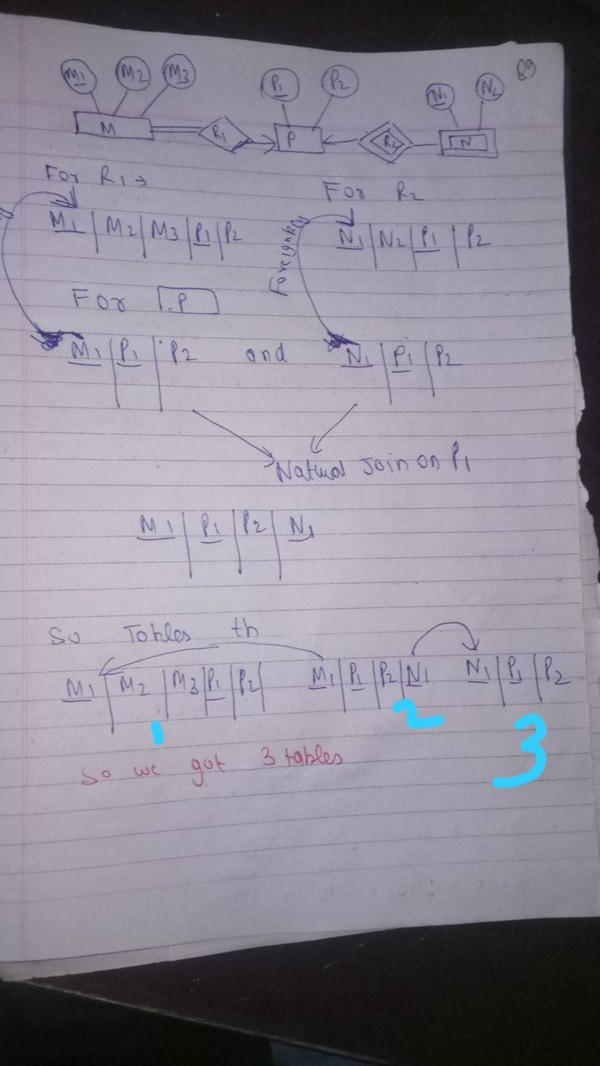 89
M1 M2 M3 P1 P2 N1 N2
M R1 P R2 N
For R1 → For R2
M1 | M2 | M3 | P1 | P2 N1 | N2 | P1 | P2
For P
M1 | P1 | P2 and N1 | P1 | P2
Natural Join on P1
M1 | P1 | P2 | N1
So Tables th
M1 | M2 | M3 | P1 | P2 | M1 | P1 | P2 | N1 N1 | P1 | P2
1 2 3
So we got 3 tables